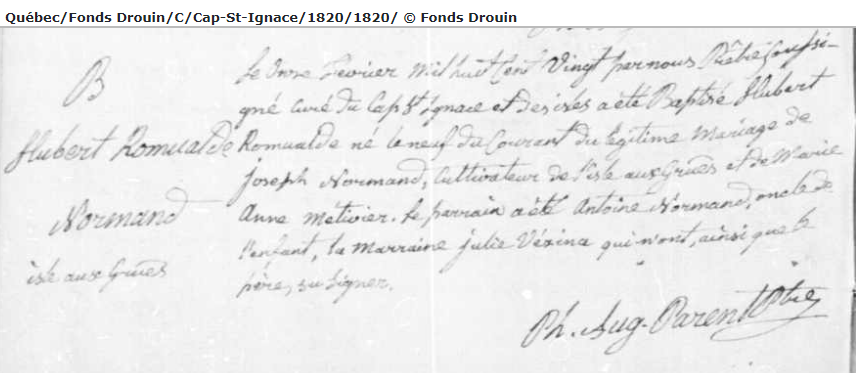 Québec/Fonds Drouin/C/Cap-St-Ignace/1820/1820/ © Fonds Drouin
B
Hubert Romualde
Normand
isle aux Grues
Le onze Fevrier Mil huit Cent Vingt par nous Prêtre Soussi-
gné curé du Cap St Ignace et des isles a été Baptisé Hubert
Romualde né le neuf du Courant du légitime Mariage de
joseph Normand, Cultivateur de l'isle aux Grues et de Marie
Anne Metivier. Le parrain a été Antoine Normand, oncle de
l'enfant, la Marraine julie Vézina qui n'ont, ainsi que le
père, su Signer.
Ph. Aug. Parent Ptre